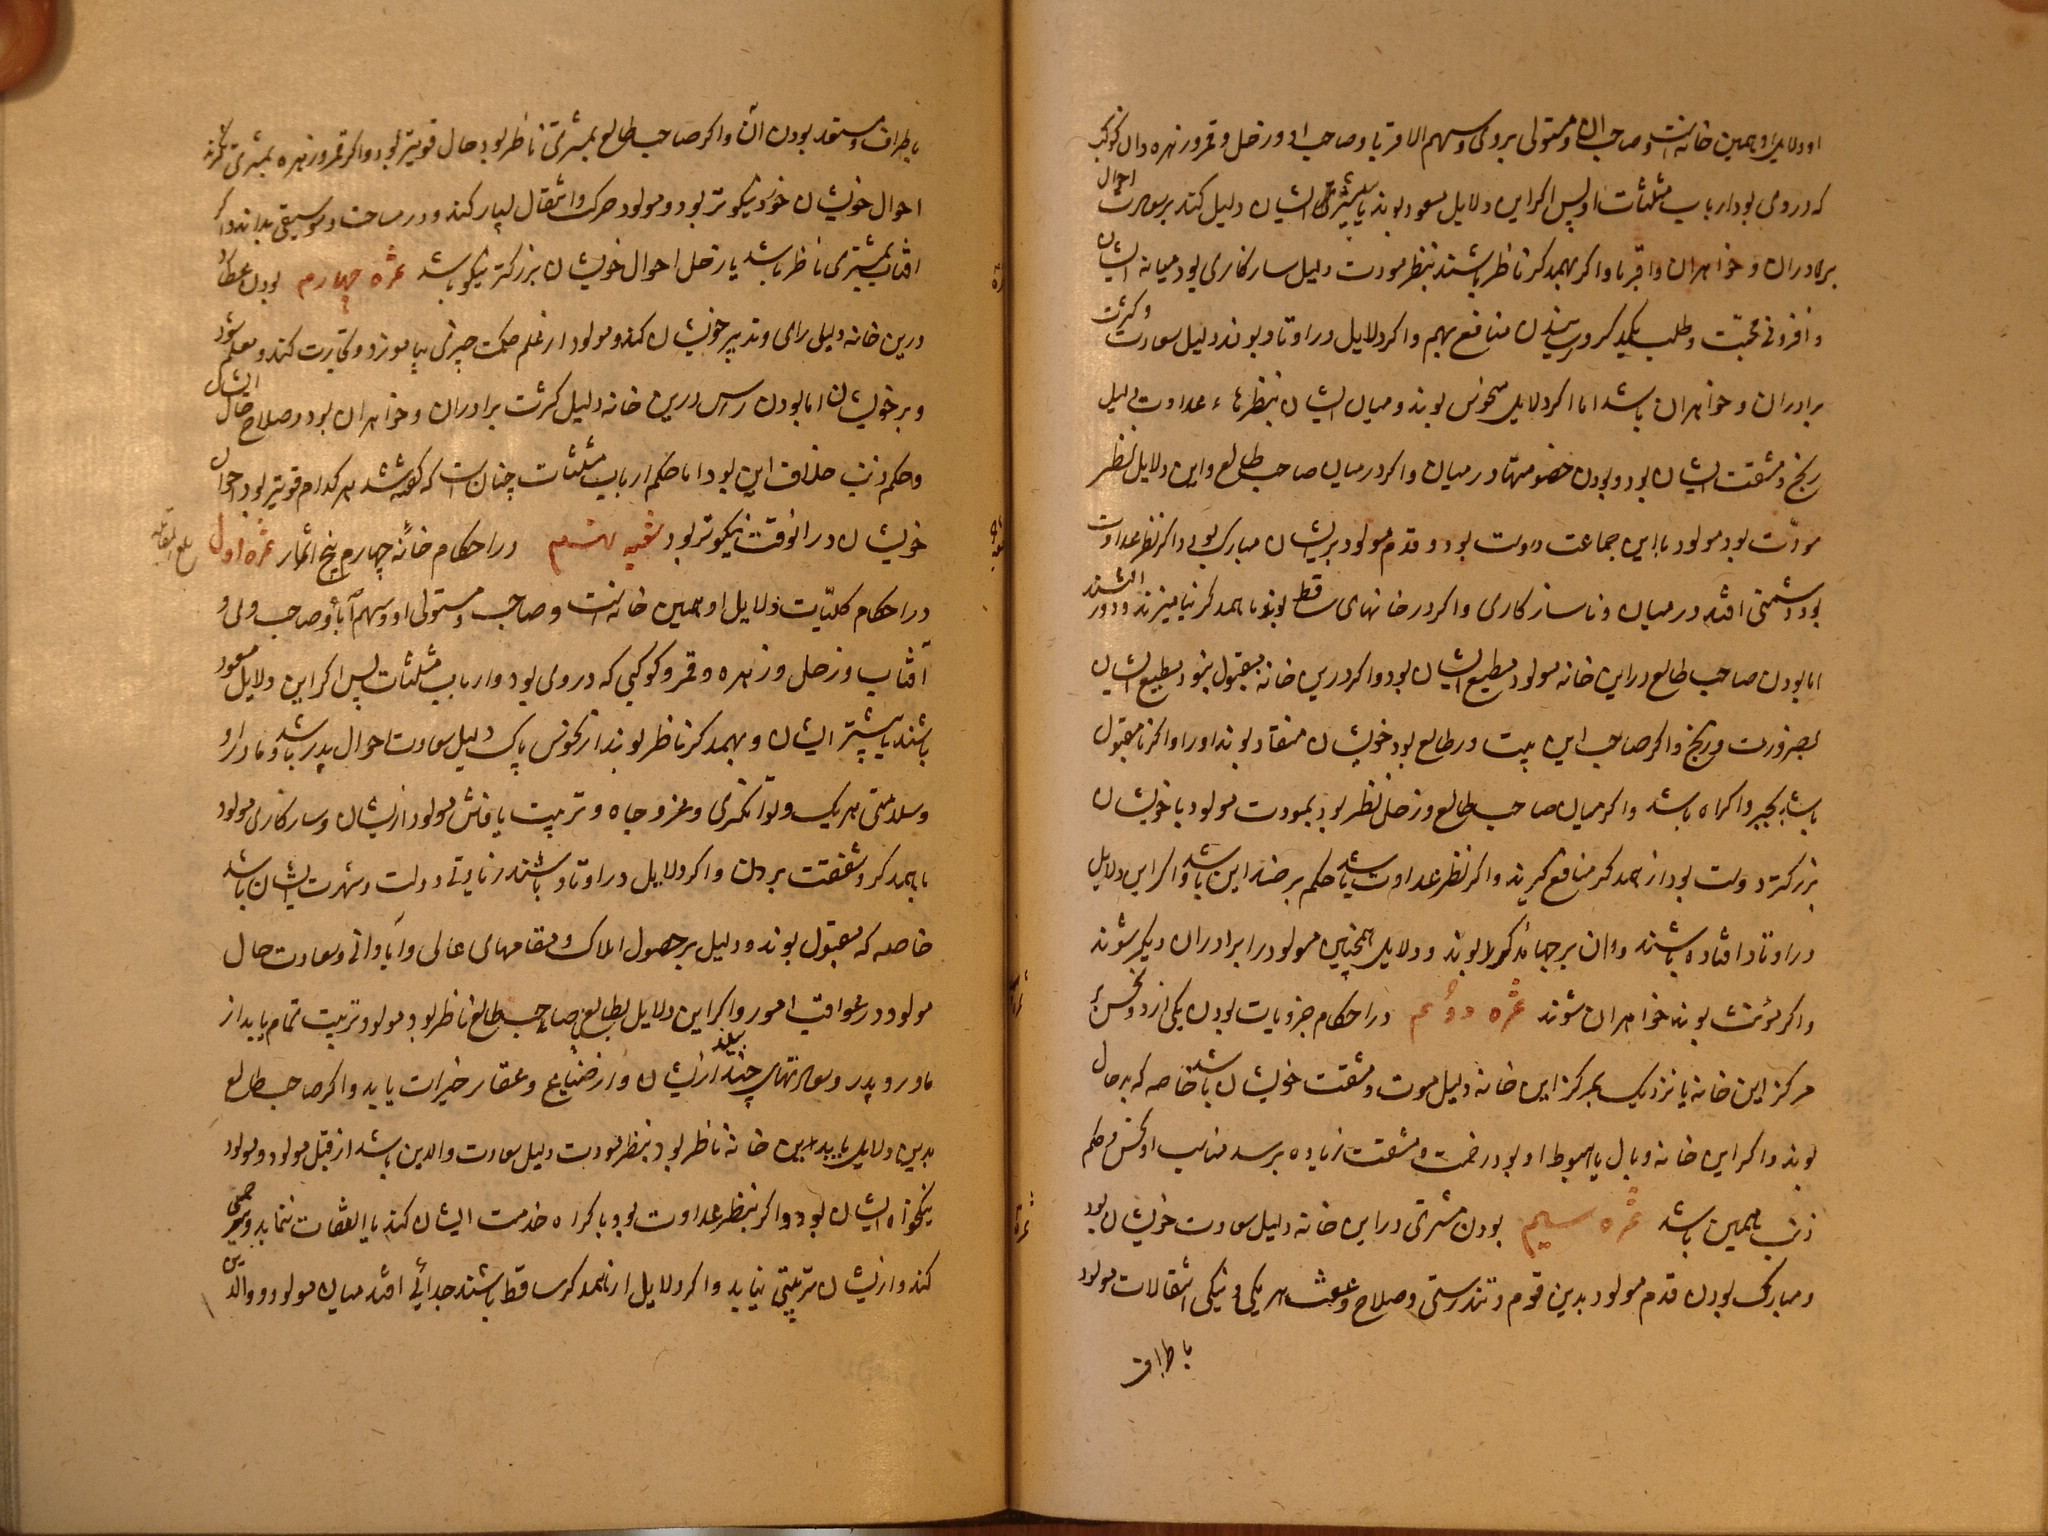 او دلایل او همین خانه است و صاحب ان و مستولی بر وی و سهم الاقربا و صاحب او و زحل و قمر و زهره و ان کوکب
که در وی بود ارباب مثلثات او پس اگر این دلایل مسعود بوند یا بیشتر ایشان دلیل کند بر سعادت احوال
برادران و خواهران و اقربا و اگر بهمدگر ناظر باشند بنظر مودت دلیل سازکاری بود میانه ایشان
و افزونی محبّت و طلب یکدیگر و رسیدن منافع بهم و اگر دلایل در اوتاد بوند دلیل سعادت و کثرت
برادران و خواهران باشد اما اگر دلایل منحوس بوند و میان ایشان نظرهاء عداوت دلیل
رنج و مشقت ایشان بود و بودن خصومتها در میان و اگر در میان صاحب طالع و این دلایل نظر
مودّت بود مولود با این جماعت دوست بود و قدم مولود بر ایشان مبارک بود و اگر نظر عداوت
بود دشمنی افتد در میان و ناسازکاری و اگر در خانهای ساقط بوند با همدگر نیامیزند و دور باشند
اما بودن صاحب طالع در این خانه مولود مطیع ایشان بود و اگر درین خانه مقبول نبود مطیع ایشان
بضرورت و رنج و اگر صاحب این بیت در طالع بود خویشان منقاد بوند او را و اگر نامقبول
باشد بجبر و اکراه باشد و اگر میان صاحب طالع و زحل نظر بود بمودت مولود با خویشان
بزرکتر دوست بود از همدگر منافع گیرند و اگر نظر عداوت باشد حکم بر ضد این باشد و اگر این دلایل
در اوتاد افتاده باشند و ان برجها مذکر بوند و دلایل همچنین مولود را برادران دیگر شوند
و اگر مؤنث بوند خواهران شوند ثمره دوُم در احکام جزویات بودن یکی از دو نحس بر
مرکز این خانه یا نزدیک بمرکز این خانه دلیل موت و مشقت خویشان باشد خاصه که بدحال
بوند و اگر این خانه وبال یا هبوط او بود زحمت و مشقت زیاده برسد مناسب او نحس و حکم
ذنب همین باشد ثمره سیم بودن مشتری در این خانه دلیل سعادت خویشان بود
و مبارک بودن قدم مولود بدین قوم و تندرستی و صلاح و هر یکی و نیکی انتقالات مولود
با طراف
باطراف و مستعد بودن ان و اگر صاحب طالع بمشتری ناظر بود حال قویتر بود و اگر قمر و زهره بمشتری نگرند
احوال خویشان خرد نیکوتر بود و مولود حرکت و انتقال بسیار کند و در مساحت و موسیقی بداند و اگر
افتاب بمشتری ناظر باشد یا زحل احوال خویشان بزرکتر نیکو باشد ثمره چهارم بودن عطارد
درین خانه دلیل رای و تدبیر خویشان کند و مولود از علم حکمت چیزی بیاموزد و کتابت کند و معلم شود
و بر خویشان اما بودن راس درین خانه دلیل کثرت برادران و خواهران بود و صلاح حال ایشان
و حکم ذنب خلاف این بود اما حکم ارباب مثلثات چنان است که گفته شد هر کدام قویتر بود احوال
خویشان در ان وقت نیکوتر بود شعبه هشتم در احکام خانه چهارم پنج اثمار ثمره اول
در احکام کلیّات دلایل او همین خانه است و صاحب و مستولی او و سهم آبا و صاحب وی و
آفتاب و زحل و زهره و قمر و کوکبی که در وی بود و ارباب مثلثات پس اگر این دلایل مسعود
باشند یا بیشتر ایشان و بهمدگر ناظر بوند از نحوس پاک دلیل سعادت احوال پدر باشد و مادر او
و سلامتی هر یک و توانگری و عز و جاه و تربیت یافتن مولود از ایشان و سازکاری مولود
با همدگر و شفقت بردن و اگر دلایل در اوتاد باشند زیادتی دولت و شهرت ایشان باشد
خاصه که مقبول بوند و دلیل بر حصول املاک و مقامهای عالی و آبادانی و سعادت حال
مولود در عواقب امور و اگر این دلایل بطالع و صاحب طالع ناظر بود مولود تربیت تمام یابد از
مادر و پدر و چند از ایشان و از ضیاع و عقار خیرات یابد و اگر صاحب طالع
بدین دلایل یا بدین خانه ناظر بود بنظر مودت دلیل سعادت والدین باشد از قبل مولود و مولود
نیکخواه ایشان بود و اگر بنظر عداوت بود باکراه خدمت ایشان کند یا التفات ننماید و
کند و از ایشان تربیتی نیابد و اگر دلایل از همدگر ساقط باشند جدائی افتد میان مولود و والدین